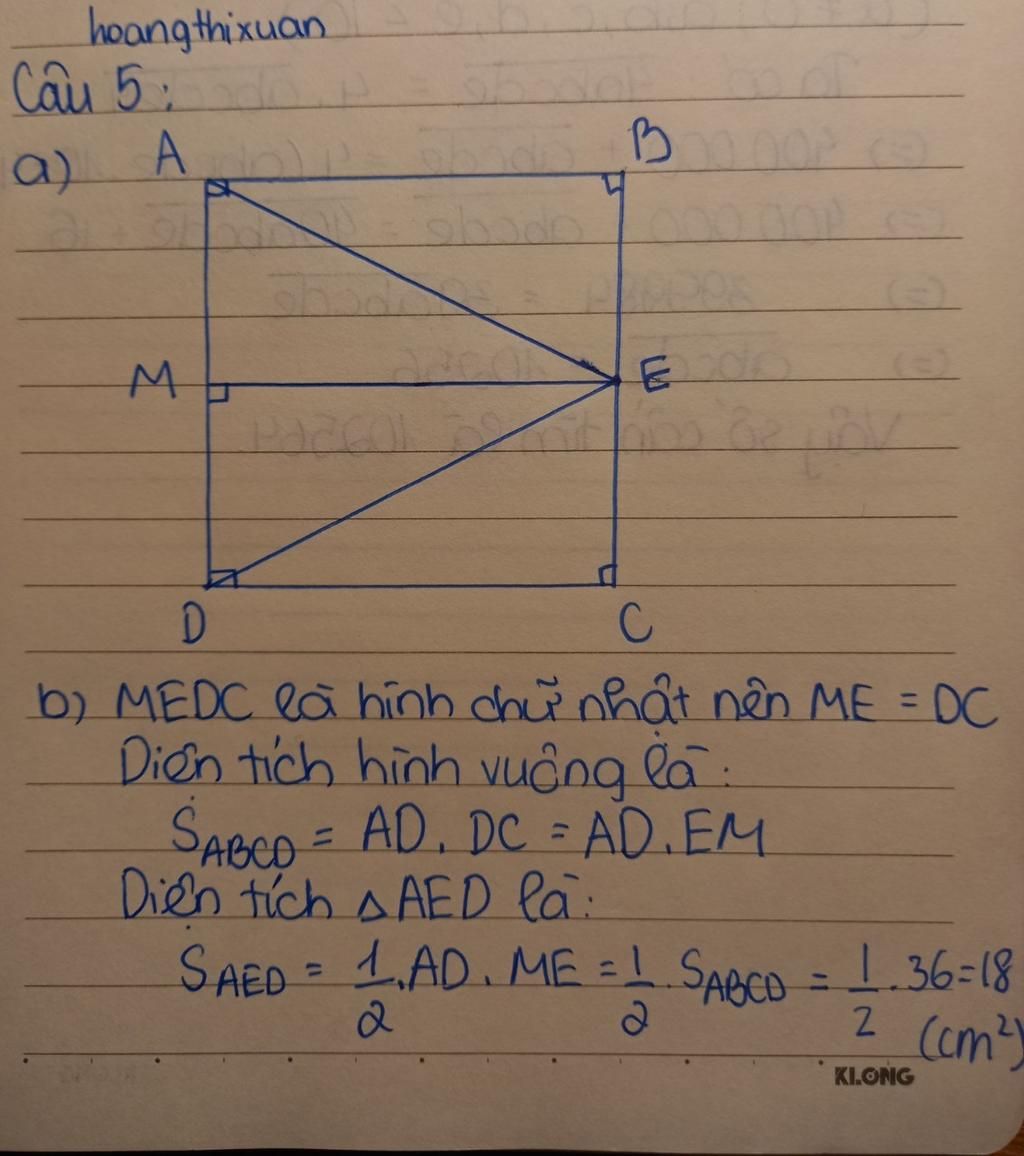 hoangthixuan
Câu 5:
a) A B
M E
D C
b) MEDC là hình chữ nhật nên ME = DC
Diện tích hình vuông là:
S_ABCD = AD. DC = AD. EM
Diện tích △AED là:
S_AED = 1/2 .AD. ME = 1/2 . S_ABCD = 1/2 . 36 = 18
(cm²)
KLONG